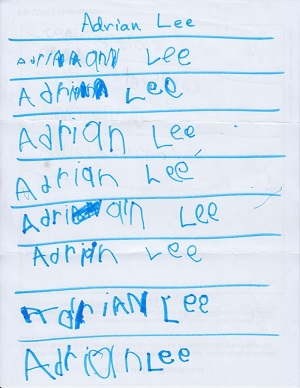 Adrian Lee
Adrian Lee
Adrian Lee
Adrian Lee
Adrian Lee
Adrian Lee
Adrian Lee
AdriAN Lee
Adrian Lee